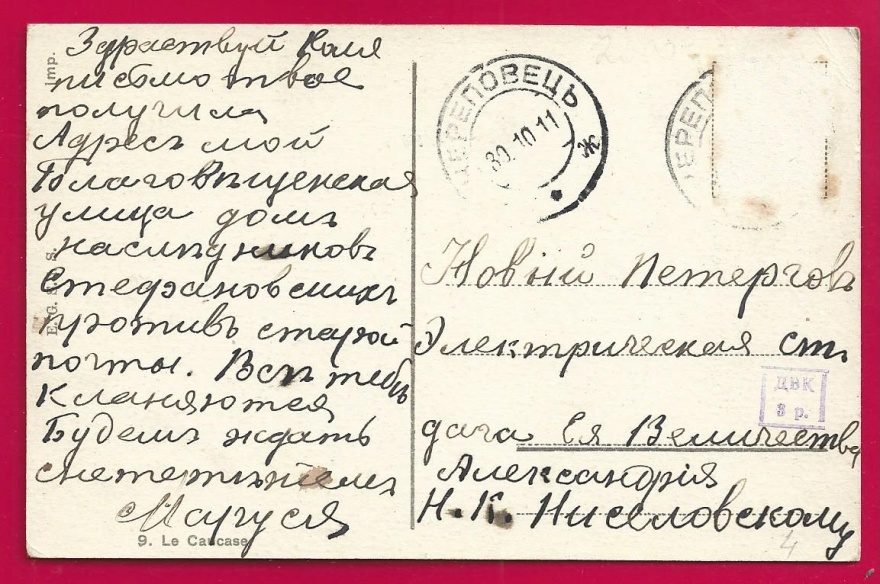 Здраствуй Коля
письмо твое
получила
Адресъ мой
Благовѣщенская
улица домъ
наслѣдниковъ
Стефановскихъ
противъ старой
почты. Всѣ тебѣ
кланяются
Будемъ ждать
снетерпѣнiемъ
Маруся
9. Le Caucase
E. G. S. I. S.
Imp.
ЧЕРЕПОВЕЦЬ
30.10.11
Ж
ЧЕРЕП
Новiй Петергофъ
Электрическая ст.
дача Ея Величества
Александрiя
Н. К. Ниселовскому
ДВК
3 р.
4